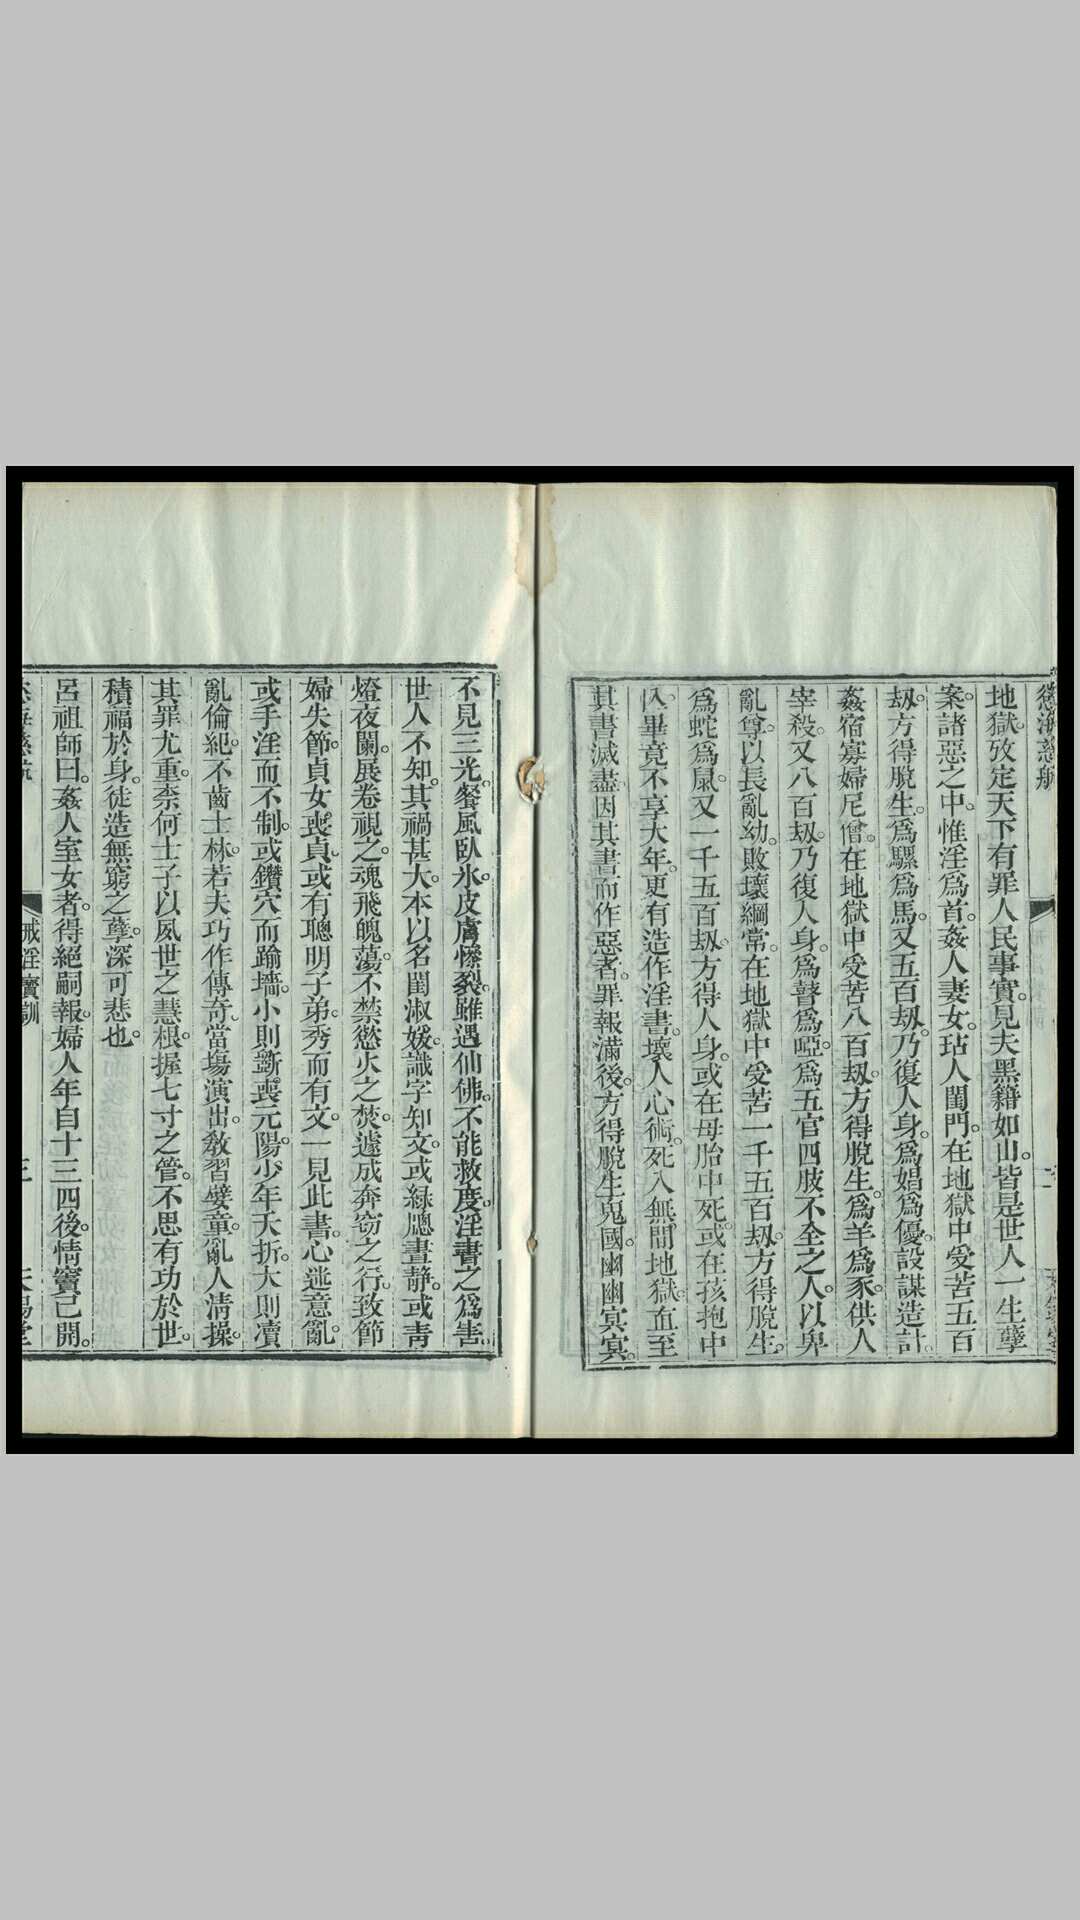 慾海慈航
地獄攷定天下有罪人民事實。見夫黑籍如山。皆是世人一生孽
案。諸惡之中。惟淫爲首。姦人妻女。玷人閨門。在地獄中受苦五百
刼。方得脫生。爲騾爲馬。又五百刼。乃復人身。爲娼爲優。設謀造計。
姦宿寡婦尼僧。在地獄中受苦八百刼。方得脫生。爲羊爲豕。供人
宰殺。又八百刼。乃復人身。爲瞽爲啞。爲五官四肢不全之人。以卑
亂尊。以長亂幼。敗壞綱常。在地獄中受苦一千五百刼。方得脫生。
爲蛇爲鼠。又一千五百刼。方得人身。或在母胎中死。或在孩抱中
亾。畢竟不享大年。更有造作淫書。壞人心術。死入無間地獄。直至
其書滅盡。因其書而作惡者。罪報滿後。方得脫生鬼國。幽幽冥冥。
不見三光。餐風臥氷。皮膚慘裂。雖遇仙佛。不能救度。淫書之爲害。
世人不知。其禍甚大。本以名閨淑媛。識字知文。或綠牕晝靜。或靑
燈夜闌。展卷視之。魂飛魄蕩。不禁慾火之焚。遽成奔窃之行。致節
婦失節。貞女喪貞。或有聰明子弟。秀而有文。一見此書。心迷意亂。
或手淫而不制。或鑽穴而踰墻。小則斵喪元陽。少年夭折。大則瀆
亂倫紀。不齒士林。若夫巧作傳奇。當塲演出。敎習嬖童。亂人清操。
其罪尤重。柰何士子以夙世之慧根。握七寸之管。不思有功於世。
積福於身。徒造無窮之孽。深可悲也。
呂祖師曰。姦人室女者。得絕嗣報。婦人年自十三四後。情竇已開。
慾海慈航 戒淫寶訓 三